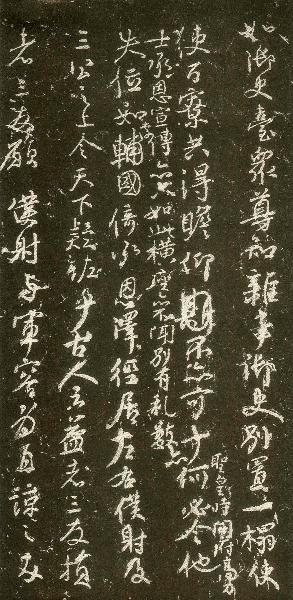 如御史臺衆尊知雜事御史別置一榻使
使百寮共得瞻仰不亦可乎何必令他
聖皇時開府高力
士承恩宣傳亦只如此橫座亦不聞別有禮數亦
失位如李輔國倚承恩澤徑居左右僕射及
三公之上令天下疑怪乎古人云益者三友損
者三友願僕射與軍容為直諒之友